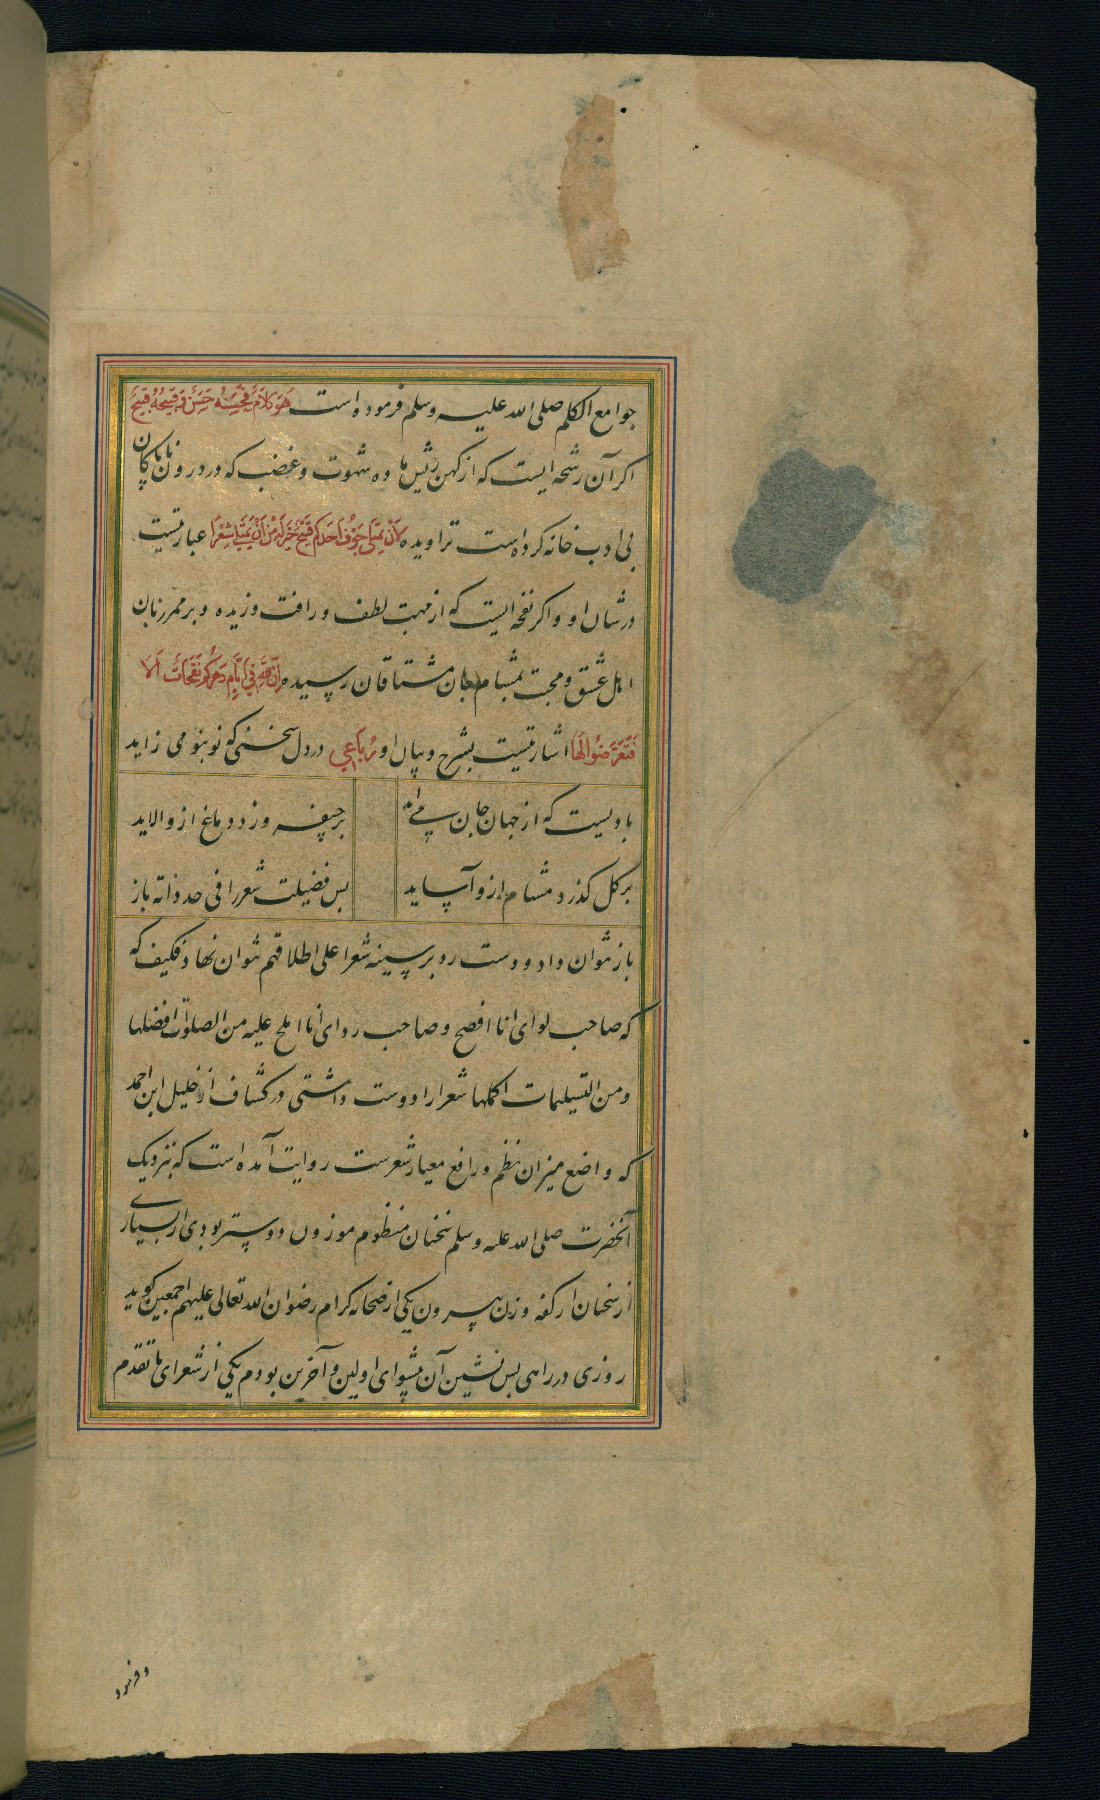 جوامع الکلم صلی الله علیه وسلم فرموده است هو کلام فحسنه حسن و قبیحه قبیح
اکر آن رشحه ایست که از کهن ریش ماده شهوت و غضب که در درون ناپاکان
بی ادب خانه کرده است تراویده لان یمتلی جوف احدکم قیح خیر له من ان یمتلی شعرا عبارتیست
درشان او و اکر نفحه ایست که از مهب لطف و رافت وزیده و بر ممر زبان
اهل عشق و محبت بمشام جان مشتاقان رسیده ان لله فی ایام دهرکم نفحات الا
فتعرضوا لها اشارتیست بشرح و بیان او رباعی در دل سخنی که نو بنو می زاید
بادیست که از جهان جان می آید
بر جیفه وزد دماغ ازو الاید
بر کل کذرد مشام ازو آساید
بس فضیلت شعر را فی حد ذاته باز
باز نتوان داد و دست رو بر سینه شعرا علی اطلاقهم نتوان نهاد فکیف که
که صاحب لوای انا افصح و صاحب ردای انا املح علیه من الصلوات افضلها
ومن التسلیمات اکملها شعر را دوست داشتی در کشاف از خلیل ابن احمد
که واضع میزان نظم و رافع معیار شعرست روایت آمده است که نزدیک
آنحضرت صلی الله علیه وسلم سخنان منظوم موزون دوستر بودی از بسیاری
از سخنان از کفه وزن بیرون یکی از صحابه کرام رضوان الله تعالی علیهم اجمعین کوید
روزی در راهی پس نشین آن پیشوای اولین و آخرین بودم یکی از شعرای ما تقدم
و فرمود